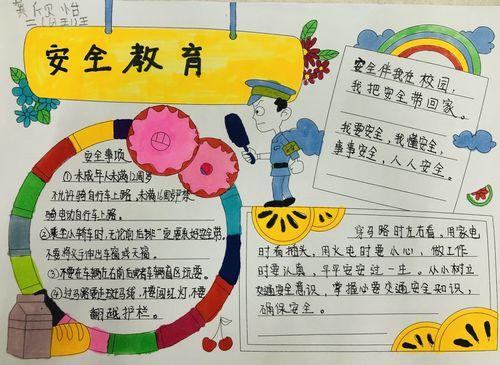 安全教育
安全伴我在校园,
我把安全带回家。
我要安全,我懂安全,
事事安全,人人安全。
安全事项
①未成年人未满12周岁
不允许骑自行车上路,未满16周岁禁
骑电动自行车上路。
②乘坐小轿车时,无论前后排一定要系好安全带,
不要将头手伸出车窗或天窗。
③不要在车辆左右前后或者车辆盲区玩耍。
④过马路要走斑马线,不要闯红灯,不要
翻越护栏。
穿马路时左右看,用家电
时看插头,用火电时要小心,做工作
时要认真,平平安安过一生。从小树立
交通安全意识,掌握必要交通安全知识,
确保安全。